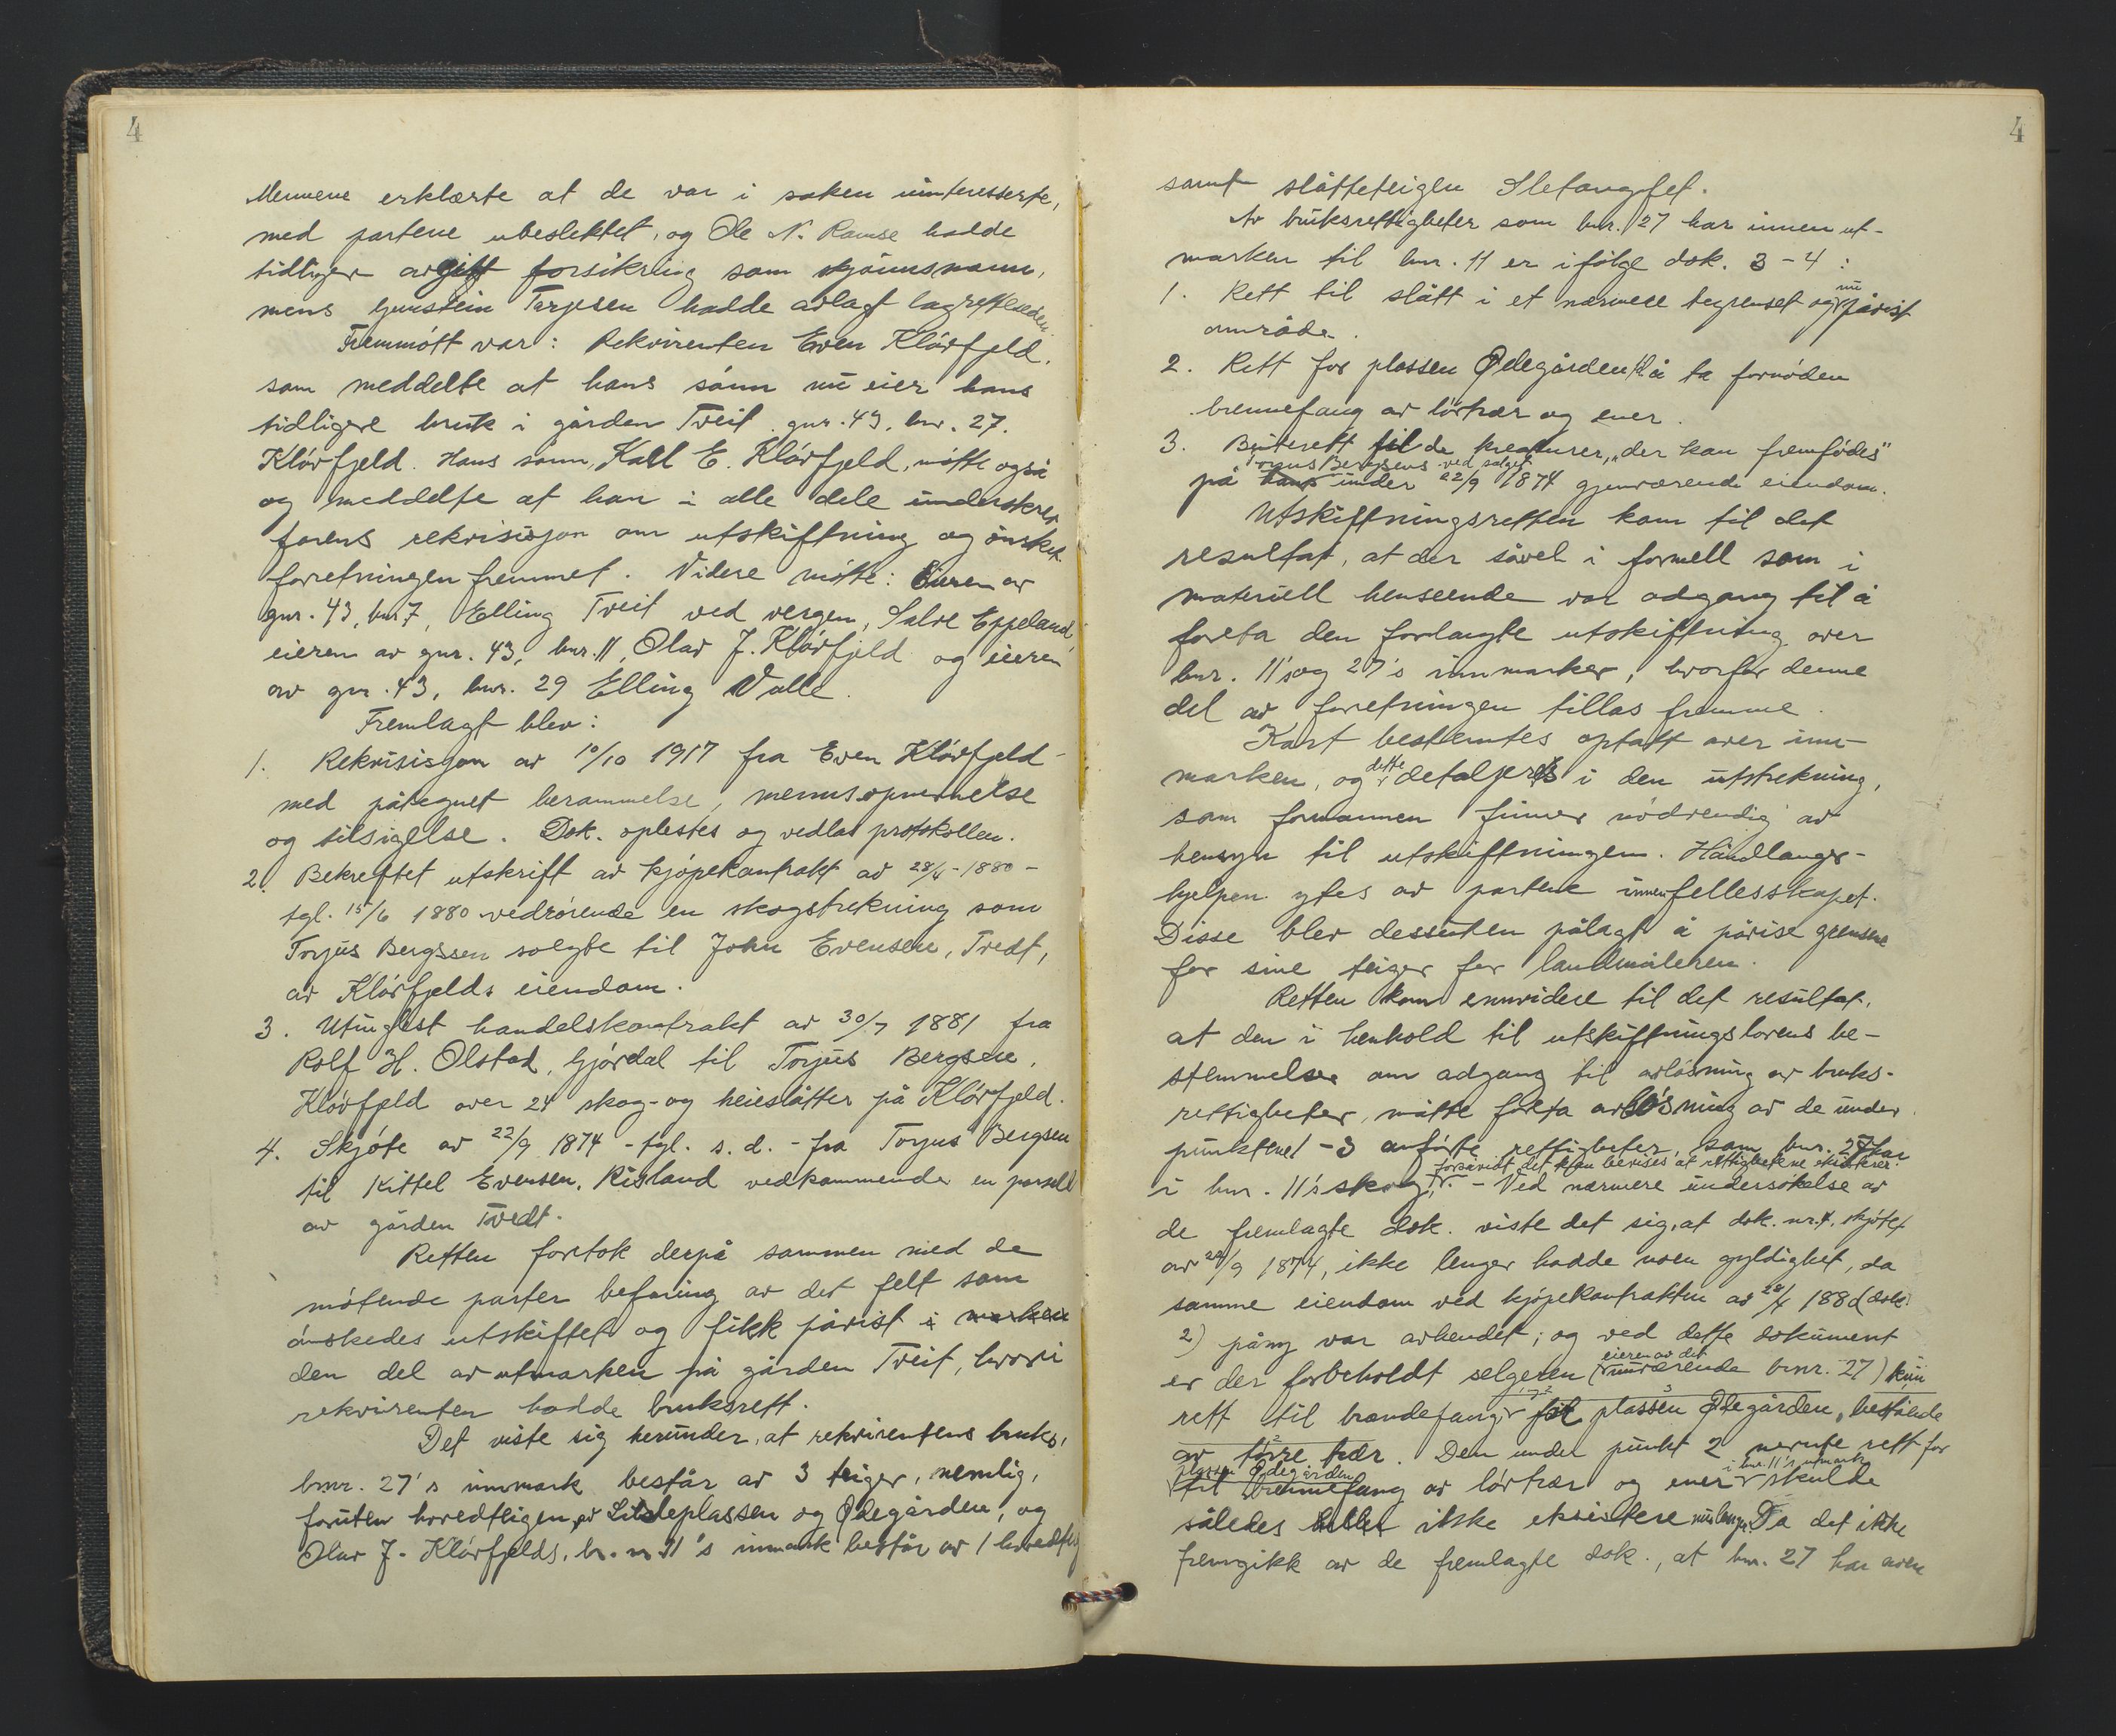 4
Mennene erklærte at de var i saken uinteresserte,
med partene ubeslektet, og Ole N. Ramse hadde
tidligere avgitt forsikring som skjönnsmann,
mens Gunstein Tarjesen hadde avlagt lagretteeden.
Fremmött var: Rekvirenten Even Klövfjeld,
som meddelte at hans sönn nu eier hans
tidligere bruk i gården Tveit gnr. 43, bnr. 27.
Klövfjeld. Hans sönn, Kall E. Klövfjeld, mötte også
og meddelte at han i alle dele underskrev
farens rekvisisjon om utskiftning og önsket
forretningen fremmet. Videre mötte: Eieren av
gnr. 43, bnr 7, Elling Tveit ved vergen, Salve Eppeland,
eieren av gnr. 43, bnr. 11, Olav J. Klövfjeld og eieren
av gnr. 43, bnr. 29 Elling Valle.
Fremlagt blev:
1. Rekvisisjon av 10/10 1917 fra Even Klövfjeld -
med påtegnet berammelse, mennsopnevnelse
og tilsigelse. Dok. oplestes og vedlas protokollen.
2. Bekreftet utskrift av kjöpekontrakt av 28/4 - 1880 -
tgl. 15/6 1880 vedrörende en skogstrekning som
Torjus Bergssen solgte til John Evensen, Tvedt,
av Klövfjelds eiendom.
3. Utinglest handelskontrakt av 30/7 1881 fra
Rolf H. Olstad, Gjövdal til Torjus Bergsen,
Klövfjeld over 24 skog- og heieslåtter på Klövfjeld.
4. Skjöte av 22/9 1874 - tgl. s. d. - fra Torjus Bergsen
til Kittel Evensen, Risland vedkommende en parsell
av gården Tvedt.
Retten foretok derpå sammen med de
mötende parter befaring av det felt som
önskedes utskiftet og fikk påvist i marken
den del av utmarken på gården Tveit, hvori
rekvirenten hadde bruksrett.
Det viste sig herunder, at rekvirentens bruks,
bnr. 27's innmark består av 3 teiger, nemlig,
foruten hovedteigen, av Litleplassen og Ödegården, og
Olav J. Klövfjelds, br. nr. 11's innmark består av 1 hovedteig
4
samt slåtteteigen Sletangfet.
Av bruksrettigheter som bnr. 27 har innen ut-
marken til bnr. 11 er ifölge dok. 3 - 4 :
1. Rett til slått i et nærmere begrenset og nu påvist
område.
2. Rett for plassen Ödegården til å ta fornöden
brennefang av lövtrær og ener.
3. Beiterett til de kreaturer, "der kan fremfödes"
Torjus Bergsens ved salget
på hans under 22/9 1874 gjenværende eiendom.
Utskiftningsretten kom til det
resultat, at der såvel i formell som i
materiell henseende var adgang til å
foreta den forlangte utskiftning over
bnr. 11's og 27's innmarker, hvorfor denne
del av forretningen tillas fremme.
Kart bestemtes optatt over inn-
marken, og dette detaljeres i den utstrekning,
som formannen finner nödvendig av
hensyn til utskiftningen. Håndlanger-
hjelpen ytes av partene innen fellesskapet.
Disse blev dessuten pålagt å påvise grensene
for sine teiger for landmåleren.
Retten kom enn videre til det resultat,
at den i henhold til utskiftningslovens be-
stemmelser om adgang til avlösning av bruks-
rettigheter, måtte foreta avlösning av de under
punktene 1 - 3 anförte rettigheter, som bnr. 27 har
forsåvidt det kan bevises at rettighetene eksisterer.
i bnr. 11's skog. - Ved nærmere undersökelse av
de fremlagte dok. viste det sig, at dok. nr. 4, skjötet
av 22/9 1874, ikke lenger hadde noen gyldighet, da
samme eiendom ved kjöpekontrakten av 28/4 1880 (dok.
2) påny var avhendet; og ved dette dokument
eieren av det
er der forbeholdt selgeren (nuværende bnr. 27) kun
rett til brændefang for plassen Ödegården, bestående
av törre trær. Den under punkt 2 nevnte rett for
plassen Ödegården i bnr. 11's utmark
til brennefang av lövtrær og ener skulde
således heller ikke eksistere nu lenger. Da det ikke
fremgikk av de fremlagte dok., at bnr. 27 har även